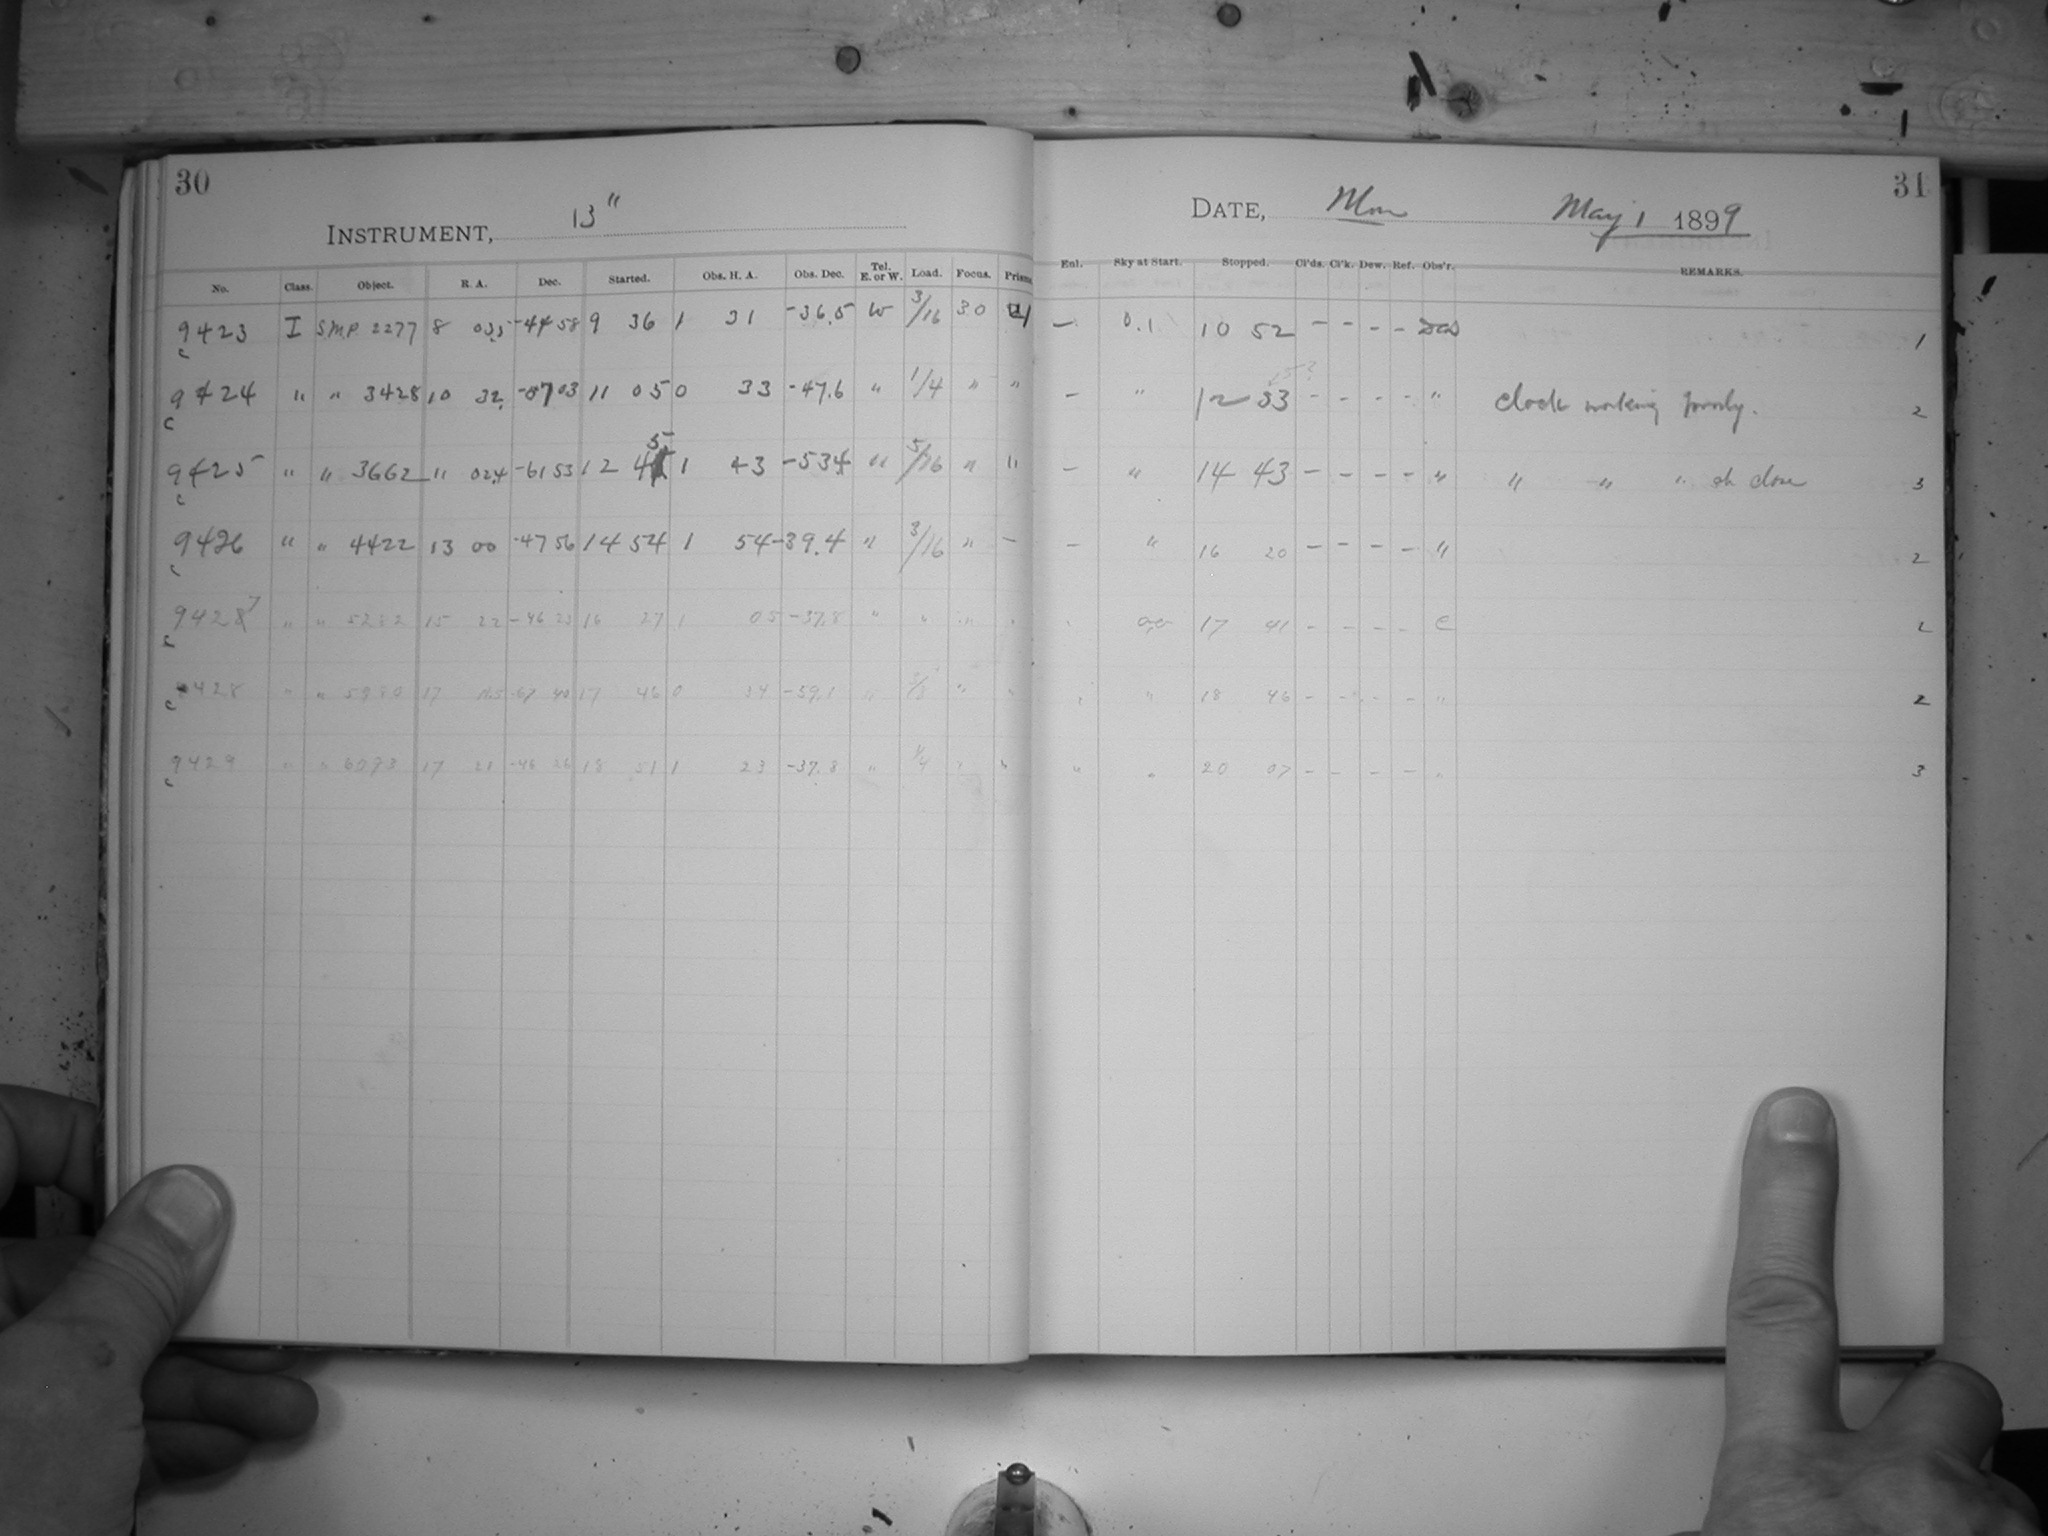 30
INSTRUMENT, 13"
No. Class. Object. R. A. Dec. Started. Obs. H. A. Obs. Dec. Tel. E. or W. Load. Focus. Prisms
9423 I S.M.P. 2277 8 03.5 -44 58 9 36 1 31 -36.5 W 3/16 30
c
9424 " " 3428 10 32. -07 03 11 05 0 33 -47.6 " 1/4 " "
c
9425 " " 3662 11 02.4 -61 53 12 45 1 43 -53.4 " 5/16 " "
c
9426 " " 4422 13 00 -47 56 14 54 1 54 -39.4 " 3/16 " -
c
9427 " " 15 22 -46 23 16 27 1 05 -37.8 " " "
c
9428 " " 17 17 46 0 34 -39.1 " "
c
9429 " " 17 21 -46 26 18 51 1 23 -37.8 " 1/4 " "
c
31
DATE, Mon May 1 1899
Enl. Sky at Start. Stopped. Cl'ds. Cl'k. Dew. Ref. Obs'r. REMARKS.
- 0.1 10 52 - - - - 1
- " 12 33 - - - - " Clock working poorly. 2
- " 14 43 - - - - " " " " at close 3
- " 16 20 - - - - " 2
17 41 - - - - C 2
" 18 46 - - - - " 2
" " 20 07 - - - - " 3